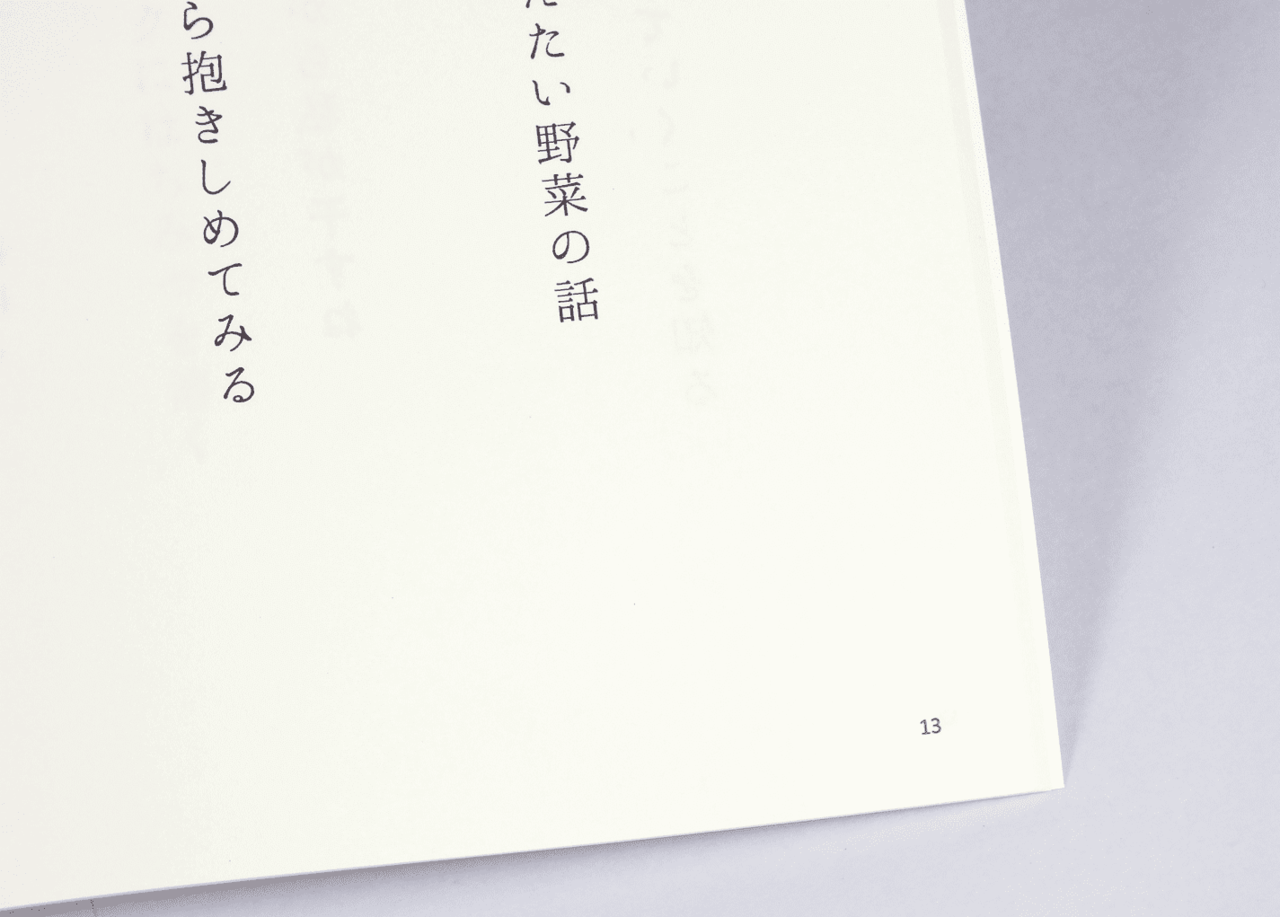 たい野菜の話
ら抱きしめてみる
13